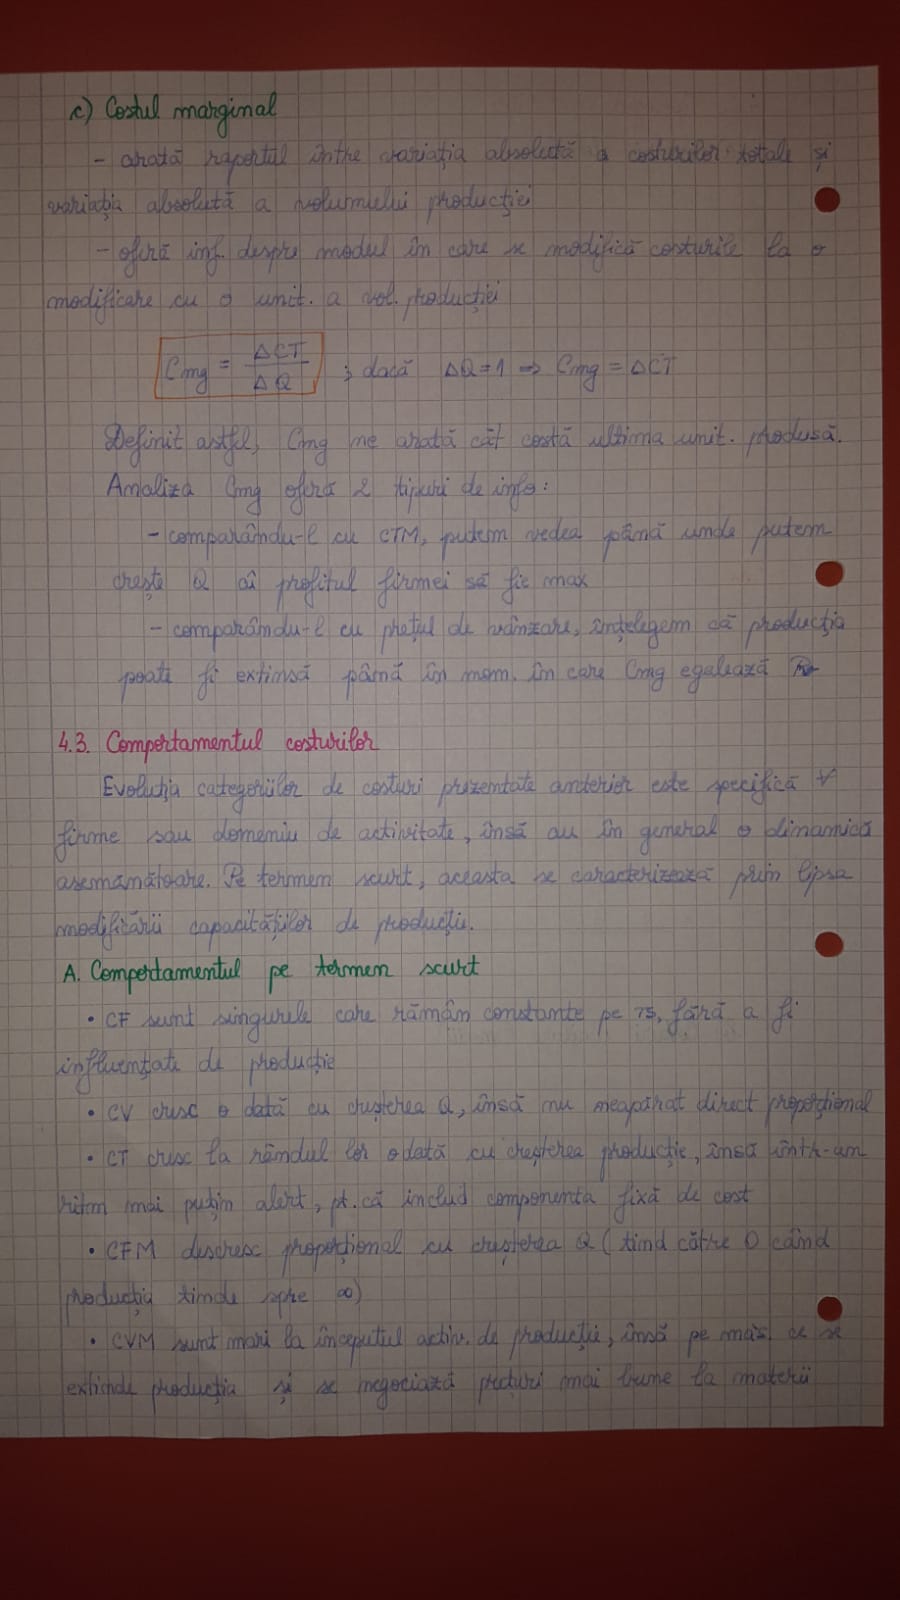 c) Costul marginal
- arată raportul între variația absolută a costurilor totale și
variația absolută a volumului producției
- oferă inf. despre modul în care se modifică costurile la o
modificare cu o unit. a vol. producției
Cmg = ΔCT / ΔQ ; dacă ΔQ = 1 => Cmg = ΔCT
Definit astfel, Cmg ne arată cât costă ultima unit. produsă.
Analiza Cmg oferă 2 tipuri de info:
- comparându-l cu CTM, putem vedea până unde putem
crește Q aî profitul firmei să fie max
- comparându-l cu prețul de vânzare, înțelegem că producția
poate fi extinsă până în mom. în care Cmg egalează
4.3. Comportamentul costurilor
Evoluția categoriilor de costuri prezentate anterior este specifică ∀
firme sau domeniu de activitate, însă au în general o dinamică
asemănătoare. Pe termen scurt, aceasta se caracterizează prin lipsa
modificării capacităților de producție.
A. Comportamentul pe termen scurt
• CF sunt singurele care rămân constante pe TS, fără a fi
influențate de producție
• CV cresc o dată cu creșterea Q, însă nu neapărat direct proporțional
• CT cresc la rândul lor odată cu creșterea producție, însă într-un
ritm mai puțin alert, pt. că includ componenta fixă de cost
• CFM descresc proporțional cu creșterea Q (tind către 0 când
producția tinde spre ∞)
• CVM sunt mari la începutul activ. de producție, însă pe măs. ce se
extinde producția și se negociază prețuri mai bune la materii